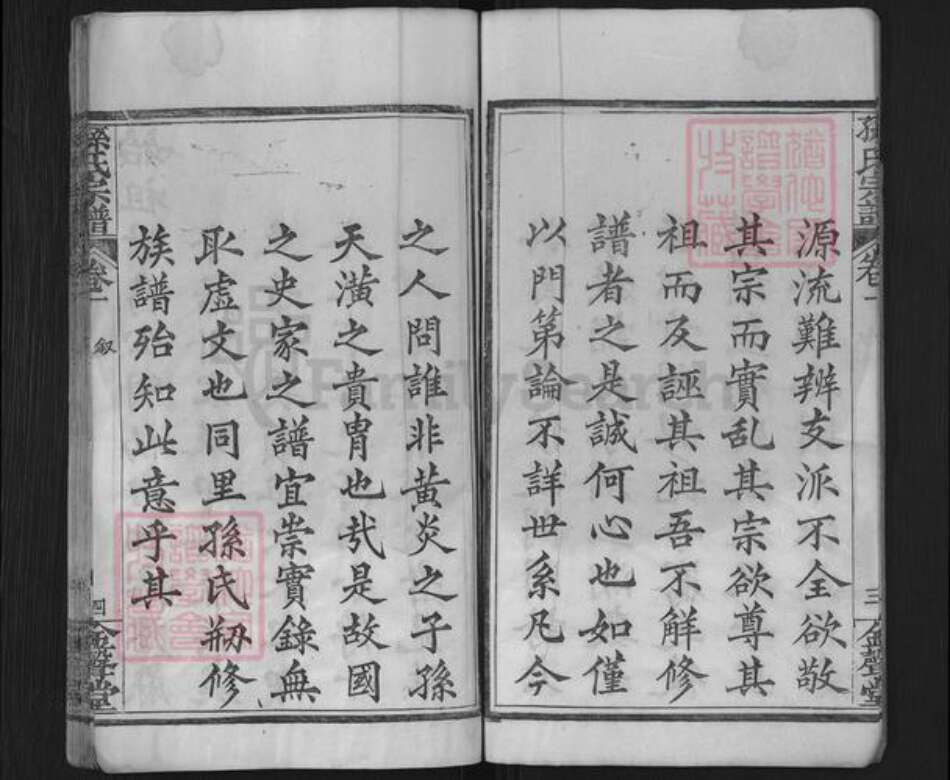 孫氏宗譜 卷一 三 金聲堂
源流難辨支派不全欲敬
其宗而實乱其宗欲尊其
祖而反誣其祖吾不解修
譜者之是誠何心也如僅
以門第論不詳世系凡今
之人問誰非黃炎之子孫
天潢之貴胄也哉是故國
之史家之譜宜崇實錄無
取虛文也同里孫氏剏修
族譜殆知此意乎其
孫氏宗譜 卷一 敘 四 金聲堂
FamilySearch